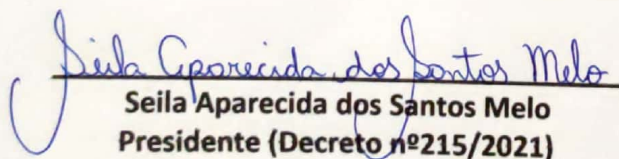 Seila Aparecida dos Santos Melo
Seila Aparecida dos Santos Melo
Presidente (Decreto nº215/2021)